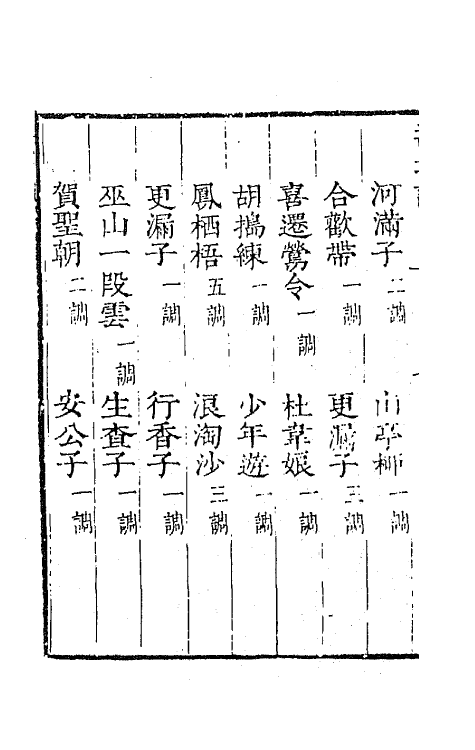 河滿子二調 山亭柳一調
合歡帶一調 更漏子三調
喜遷鶯令一調 杜韋娘一調
胡搗練一調 少年遊一調
鳳栖梧五調 浪淘沙三調
更漏子一調 行香子一調
巫山一段雲一調 生查子一調
賀聖朝二調 安公子一調